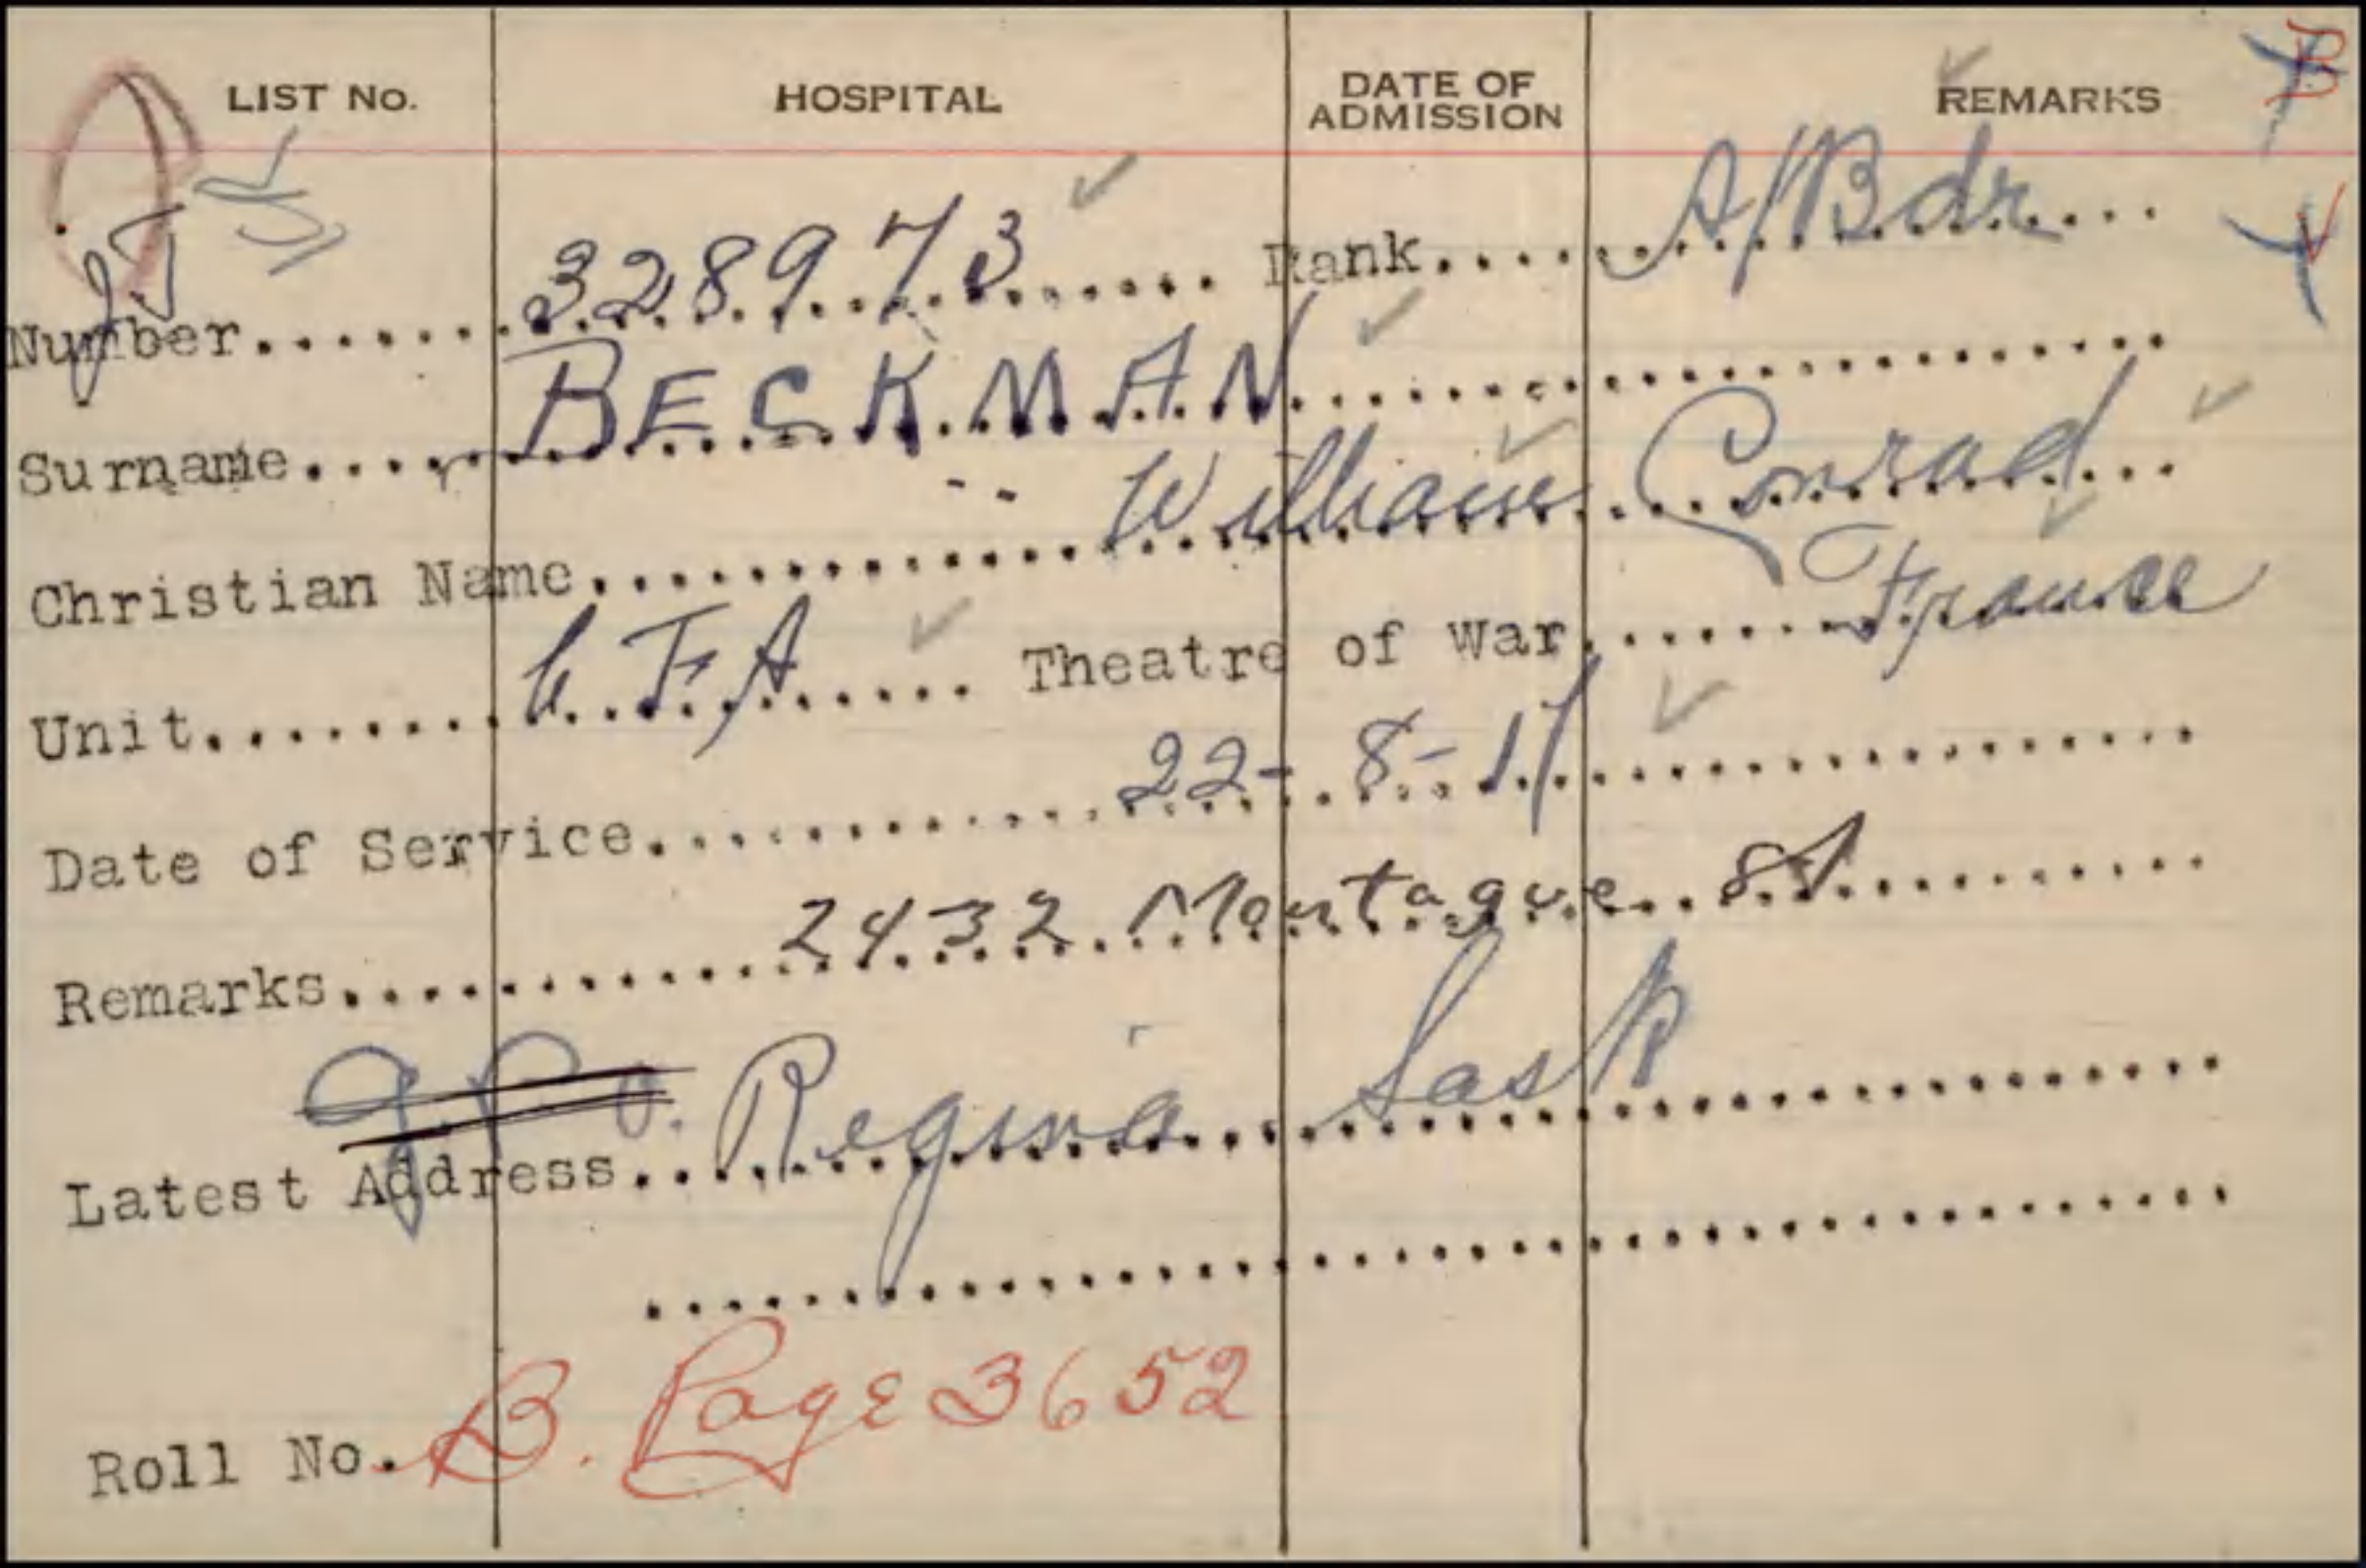 LIST No. HOSPITAL DATE OF ADMISSION REMARKS
Number....... 328973 ....... Rank.... A/Bdr....
Surname..... BECKMAN.....................
Christian Name............. William Conrad...
Unit........ C.F.A..... Theatre of War....... France
Date of Service............ 22-8-17................
Remarks............ 2432 Montague St..........
G.P.O. Regina Sask
Latest Address...............................
........................................
Roll No. B. Page 3652